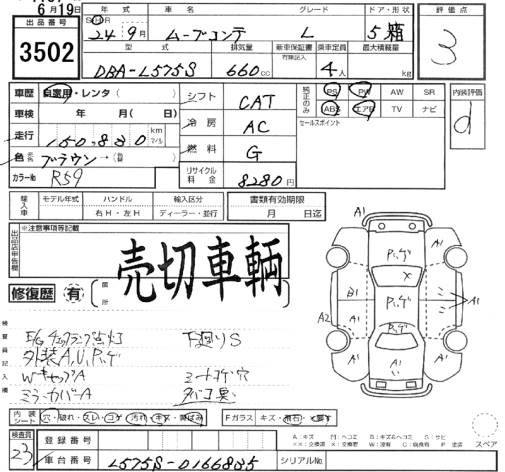 6月19日
出品番号
3502
年式 車名 グレード ドア・形状 評価点
24年 9月 ムーブコンテ L 5 箱 3
型式 排気量 新車保証書 乗車定員 最大積載量
有無記入
DBA-L575S 660cc 4人 kg
車歴 自家用・レンタ( ) シフト CAT
純正のみ PS PW AW SR
ABS エアB TV ナビ
内装評価 d
車検 年 月( 日) 冷房 AC セールスポイント
走行 150,830 km マイル
燃料 G
色 元色 ブラウン→(替 )
カラーNo R59 リサイクル料金 8280円
輸入車 モデル年式 ハンドル 輸入区分 書類有効期限
右H・左H ディーラー・並行 月 日迄
出品店申告欄 ※注意事項等記載
売切車輌
修復歴 有 箇所
検査員記入欄
E/Gチェックランプ点灯 下廻りS
外装A,U,Pハゲ
WキャップA シートコゲ穴
ミラーカバーA タバコ臭
A1
Pハゲ
A1 A1
X
B1 Pハゲ A1
A2
Pハゲ
A1 A1
A1
内装シート 穴・破れ・スレ・コゲ 汚れ・キズ・黄ばみ Fガラス キズ・飛石・X要す
A:キズ P:凹ミ B:キズ&凹ミ S:サビ
XX:交換済 X:交換要 W:波 C:腐食有 P:塗装
スペア
検査員 23 登録番号
車台番号 L575S-0166835 シリアルNo.